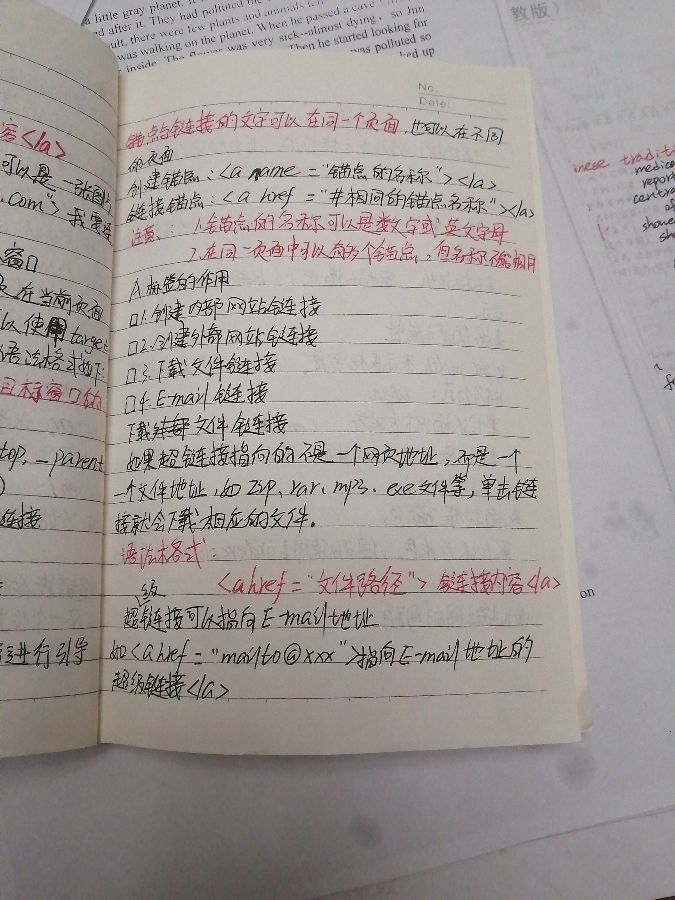 a little gray planet. It
d after it. They had polluted the
ult, there were few plants and animals
was walking on the planet. When he passed a cave
inside. The flower was very sick--almost dying, so Jan
Then he started looking for
was polluted so
ked up
教版）
No.
Date:
容</a>
可以是一张图片
.com">我要
窗口
在当前页面
以使用target
语法格式如下:
目标窗口的
top, _parent
)
连接
进行引导
锚点与链接的文字可以在同一个页面，也可以在不同
的页面
创建锚点：<a name="锚点的名称"></a>
链接锚点：<a href="#相同的锚点名称"></a>
注意：1.锚点的名称可以是数字或英文字母
2.在同一页面中可以有多个锚点，但名称不能相同
A标签的作用
口1.创建内部网站链接
口2.创建外部网站链接
口3.下载文件链接
口4.E-mail链接
下载文件链接
如果超链接指向的不是一个网页地址，而是一个
一个文件地址，如zip、rar、mp3、exe文件等，单击链
接就会下载相应的文件。
语法格式：
<a href="文件路径">链接内容</a>
超级链接可以指向E-mail地址
如<a href="mailto@xxx">指向E-mail地址的
超级链接</a>
inese traditi
medica
report
centra
of
on